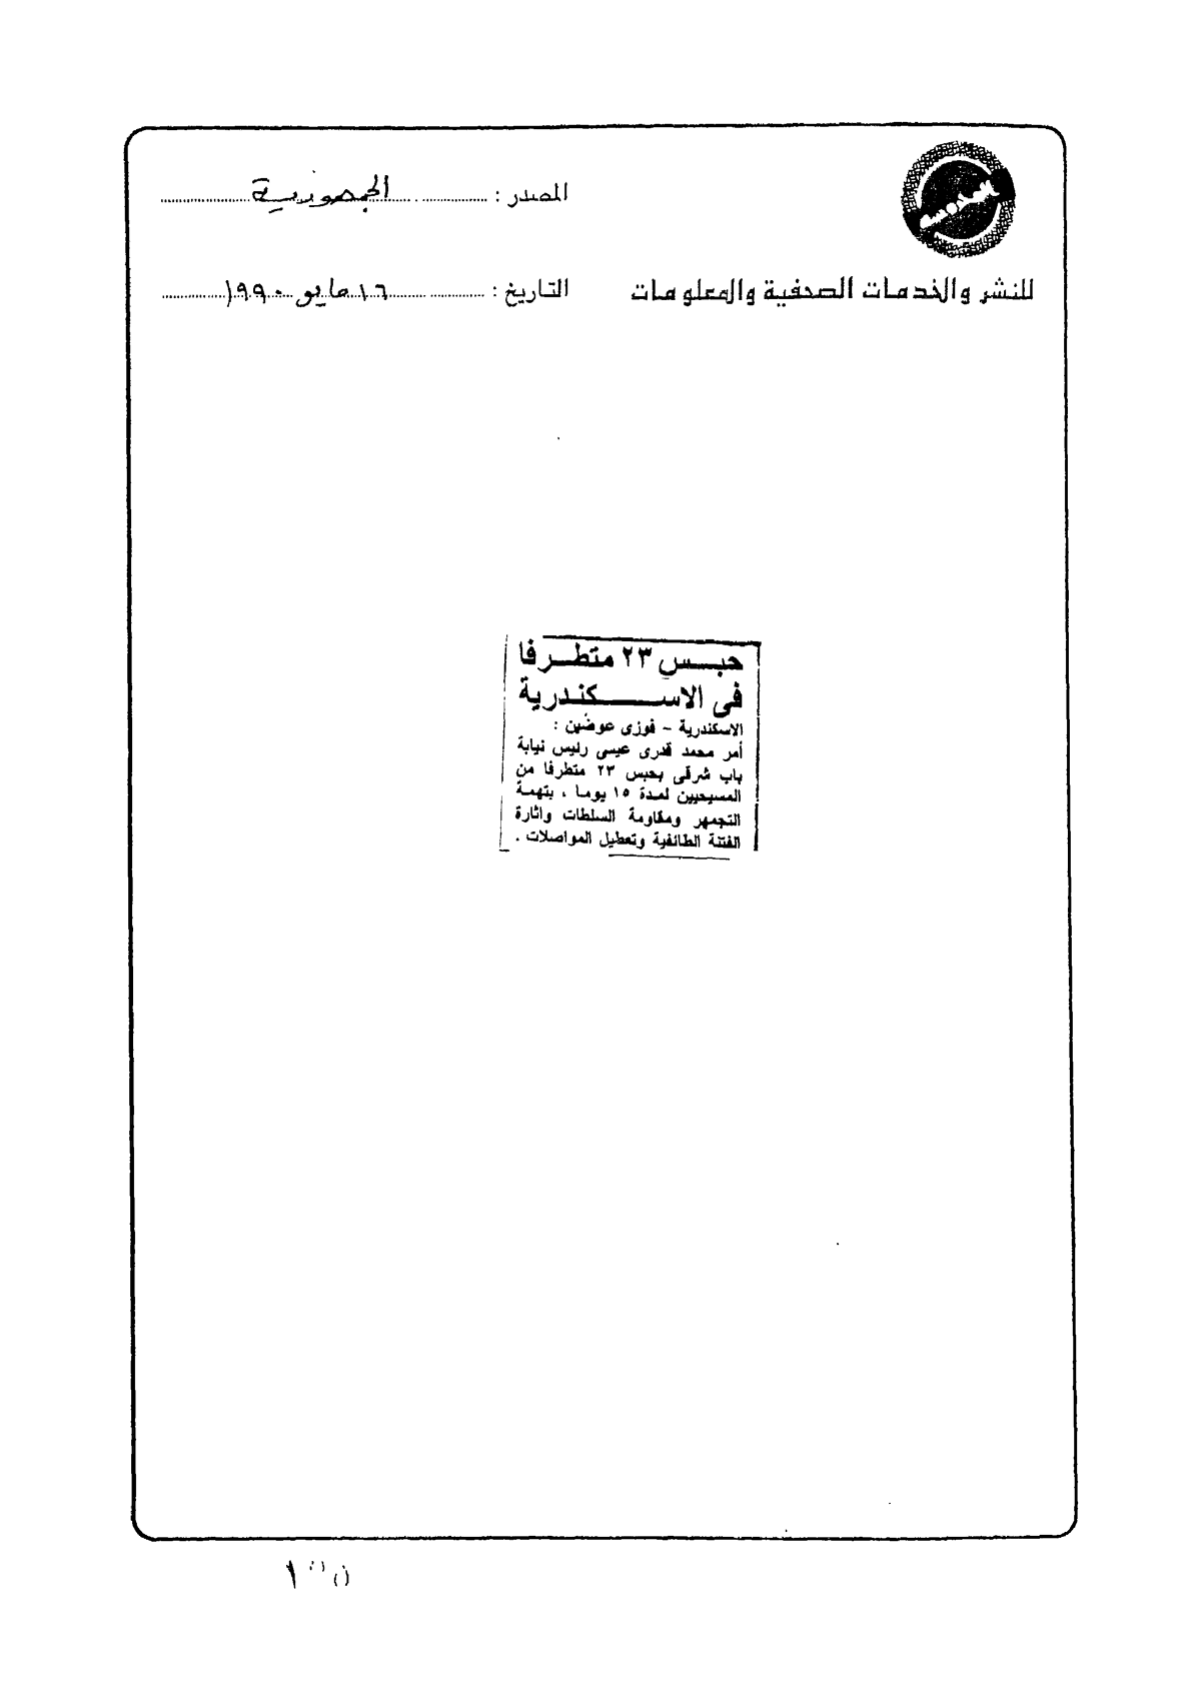 المصدر : الجمهورية
للنشر والخدمات الصحفية والمعلومات
التاريخ : ١٦ مايو ١٩٩٠
حبس ٢٣ متطرفا
فى الاسكندرية
الاسكندرية - فوزى عوضين :
أمر محمد قدرى عيسى رئيس نيابة
باب شرقى بحبس ٢٣ متطرفا من
المسيحيين لمدة ١٥ يوما ، بتهمة
التجمهر ومقاومة السلطات واثارة
الفتنة الطائفية وتعطيل المواصلات .